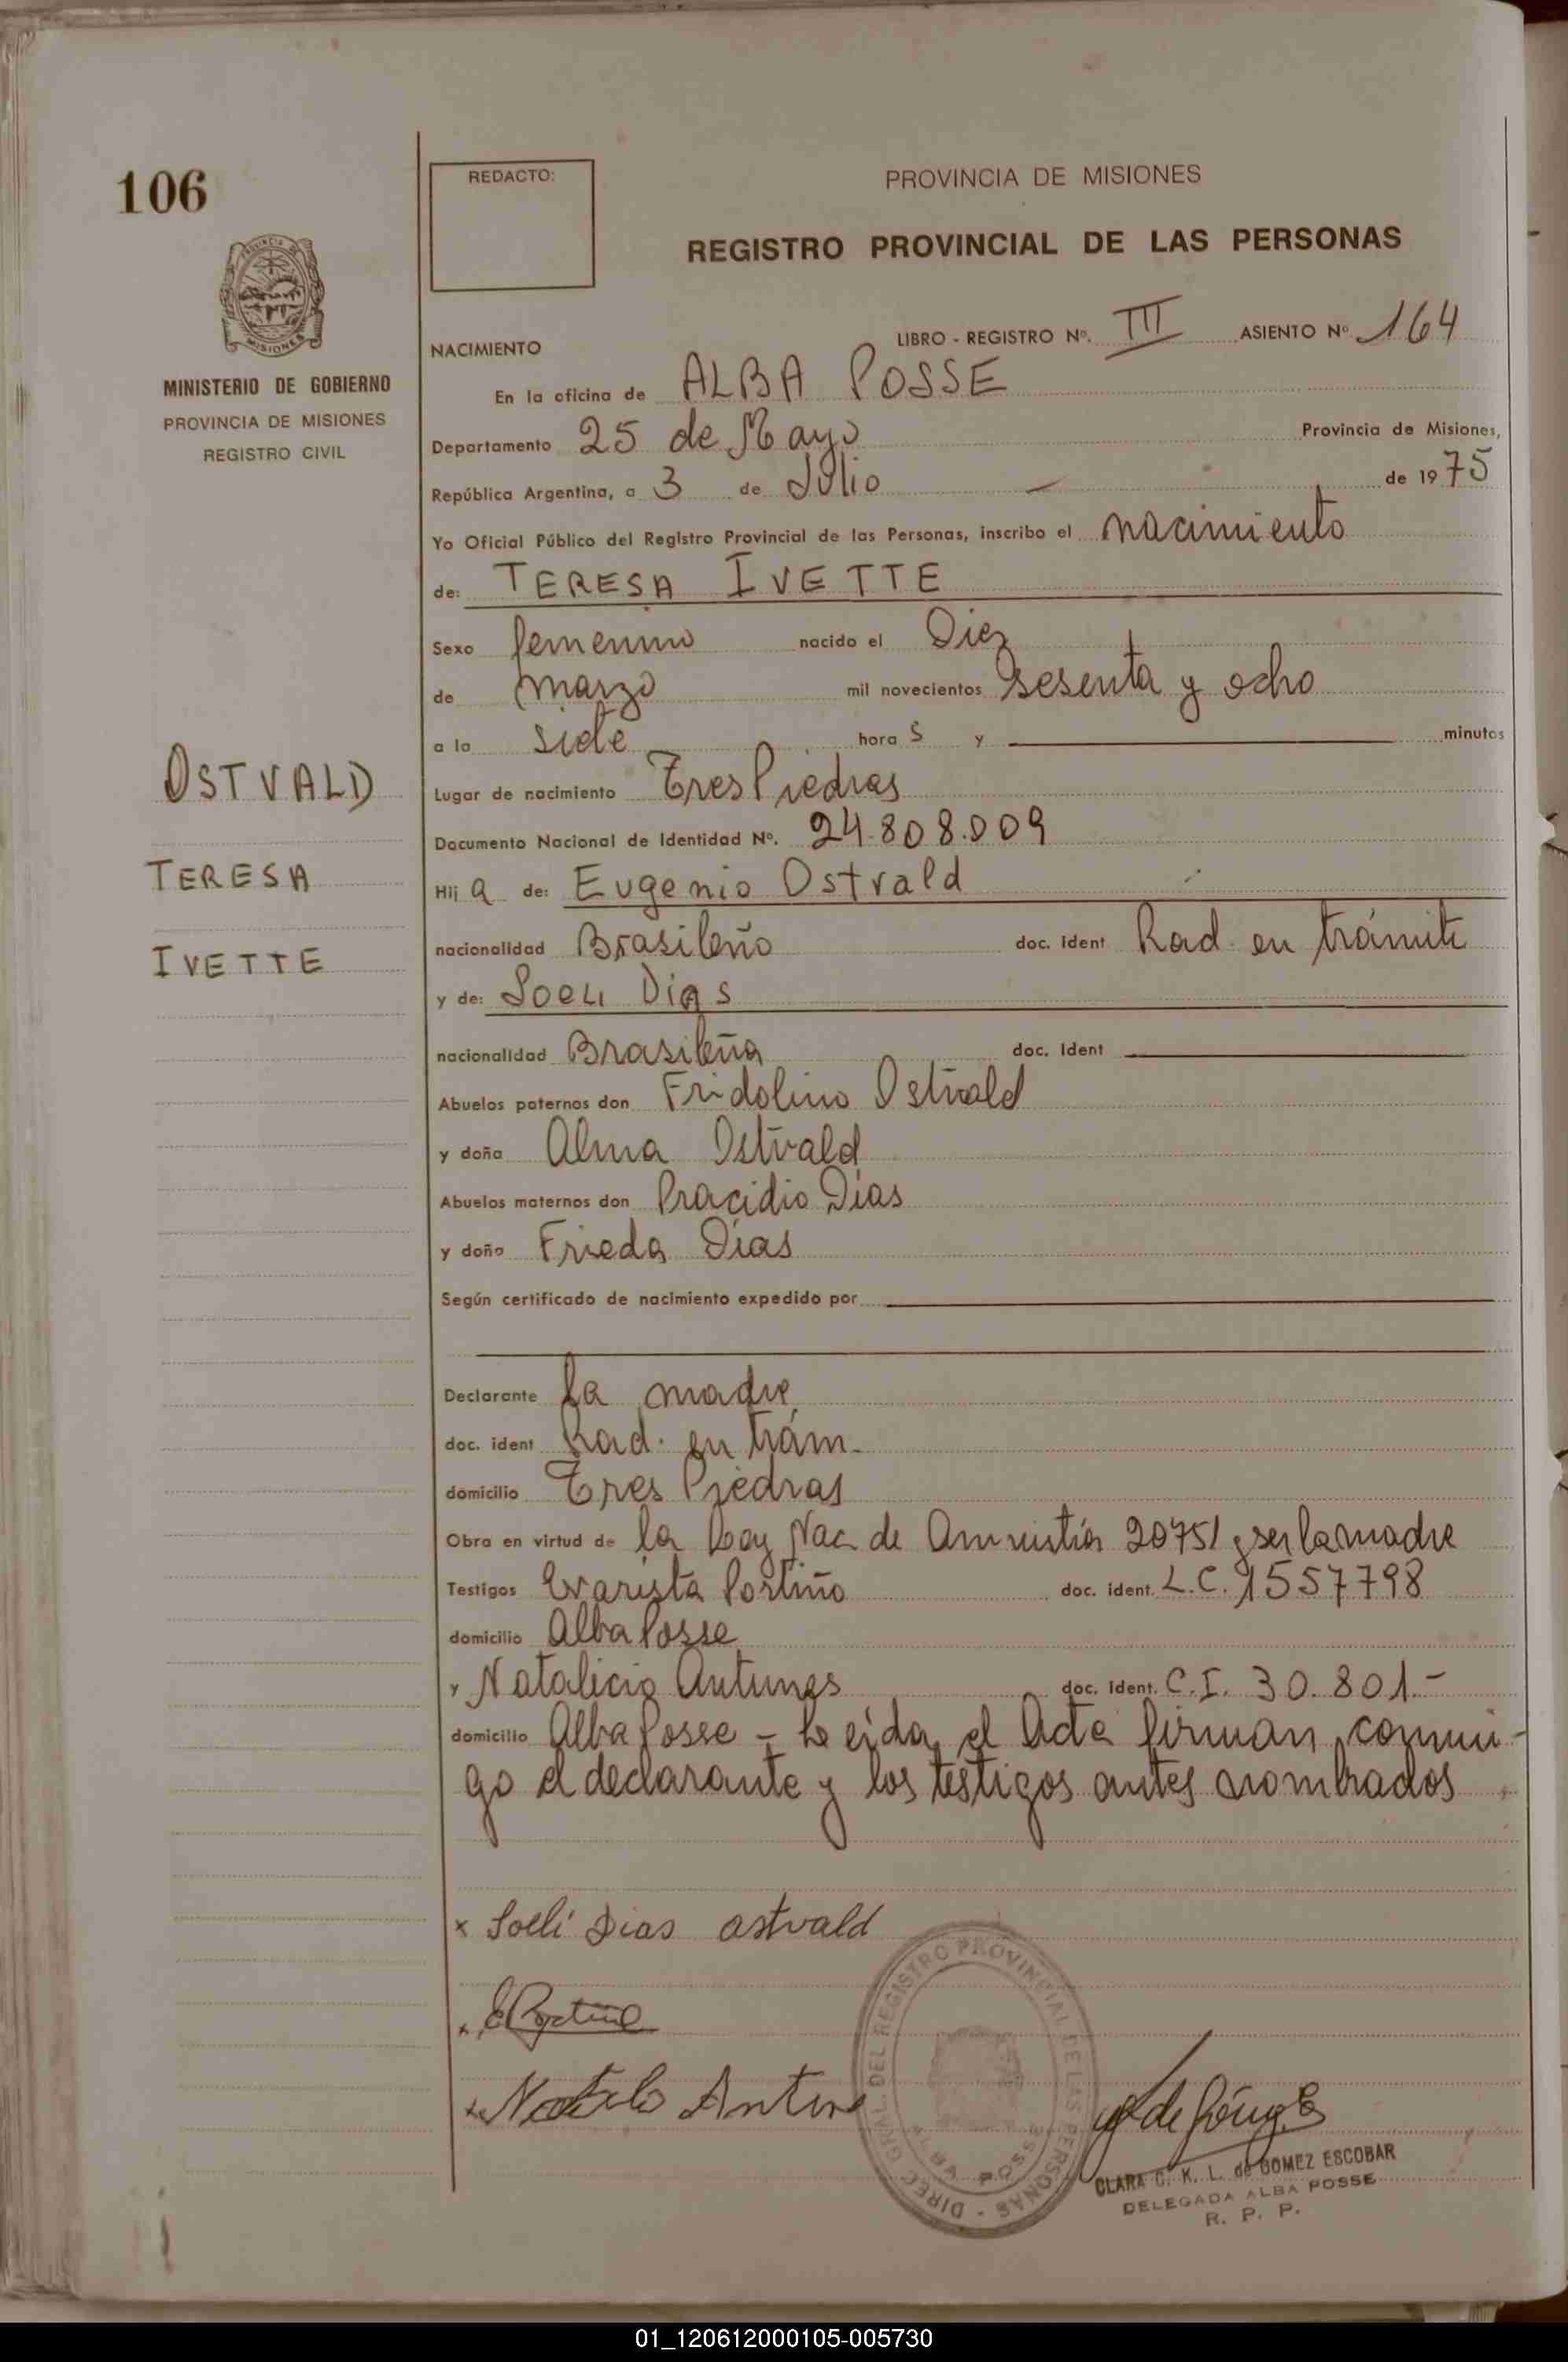 106
REDACTO:
PROVINCIA DE MISIONES
REGISTRO PROVINCIAL DE LAS PERSONAS
MISIONES
MINISTERIO DE GOBIERNO
PROVINCIA DE MISIONES
REGISTRO CIVIL
LIBRO - REGISTRO Nº. III ASIENTO Nº 164
NACIMIENTO
En la oficina de ALBA POSSE
Departamento 25 de Mayo Provincia de Misiones,
República Argentina, a 3 de Julio de 1975
Yo Oficial Público del Registro Provincial de las Personas, inscribo el nacimiento
de: TERESA IVETTE
Sexo femenino nacido el Diez
de marzo mil novecientos sesenta y ocho
a la siete hora s y minutos
OSTVALD
Lugar de nacimiento Tres Piedras
Documento Nacional de Identidad Nº. 24.808.009
TERESA
Hij a de: Eugenio Ostvald
IVETTE
nacionalidad Brasileño doc. Ident Rad. en trámite
y de: Soeli Dias
nacionalidad Brasileña doc. Ident
Abuelos paternos don Fridolino Ostvald
y doña Alma Ostvald
Abuelos maternos don Pracidio Días
y doña Frieda Días
Según certificado de nacimiento expedido por
Declarante La madre
doc. ident Rad. en trám.
domicilio Tres Piedras
Obra en virtud de la Ley Nac. de Amnistía 20751 y ser la madre
Testigos Evarista Portiño doc. ident. L.C. 1557798
domicilio Alba Posse
y Natalicio Antunes doc. Ident. C.I. 30.801.-
domicilio Alba Posse - Leída el Acta firman conmi-
go el declarante y los testigos antes nombrados
x Soeli Dias ostvald
x
x
DIREC. GRAL. DEL REGISTRO PROVINCIAL DE LAS PERSONAS - ALBA POSSE
CLARA C. K. L. de GOMEZ ESCOBAR
DELEGADA ALBA POSSE
R. P. P.
01_120612000105-005730